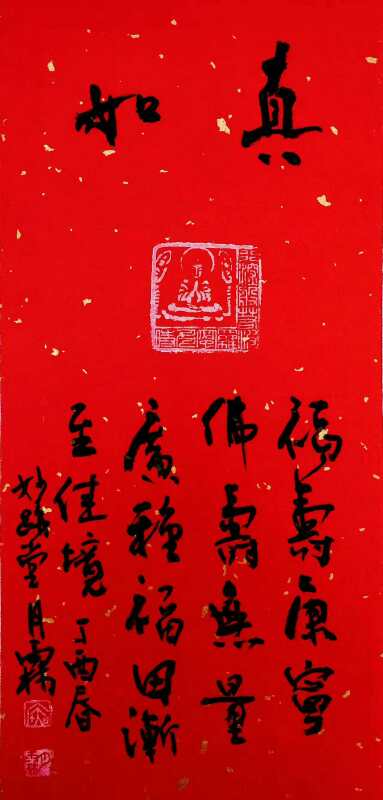 真如
福壽康寧
佛壽無量
廣種福田漸
至佳境 丁酉春
妙 堂 月